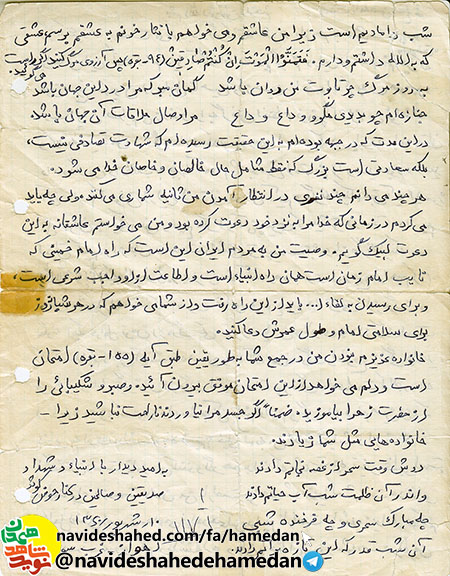 شب دامادیم است زیرا من عاشقم و می خواهم با نثار خونم به عشقم برسم عشقی
که به الله داشتم و دارم. فَتَمَنَّوُا الْمَوْتَ اِنْ كُنْتُمْ صادِقینَ (۹۴- بقره) پس آرزوی مرگ کنید اگر راست می گوئید.
به روز مرگ چو تابوت من روان باشد گمان مبر که مرا درد این جهان باشد
جنازه ام چو بدیدی مگو وداع وداع مرا وصال ملاقات آن جهان باشد
در این مدت که در جبهه بوده ام به این حقیقت رسیده ام که شهادت تصادفی نیست،
بلکه سعادتی است بزرگ که فقط شامل حال خالصان و خاصان خدا می شود.
هر چند می دانم چند نفری در انتظار آمدن من ثانیه شماری می کنند ولی چه باید
می کردم در زمانی که خدا مرا به نزد خود دعوت کرده بود و من می خواستم عاشقانه به این
دعوت لبیک گویم. وصیت من به مردم ایران این است که راه امام خمینی که
نایب امام زمان است همان راه انبیاء است و اطاعت از او واجب شرعی است،
و برای رسیدن به لقاء ا... باید از این راه رفت و از شما می خواهم که در هر شبانه روز
برای سلامتی امام و طول عمرش دعا کنید.
خانواده عزیزم نبودن من در جمع شما به طور یقین طبق آیه (۱۵۵- بقره) امتحان
است و دلم می خواهد از این امتحان موفق بیرون آئید. و صبر و شکیبائی را
از حضرت زهرا بیاموزید. ضمناً اگر جسد مرا نیاوردند ناراحت نباشید زیرا -
خانواده هایی مثل شما زیادند.
دوش وقت سحر از غصه نجاتم دادند
واندر آن ظلمت شب آب حیاتم دادند
چه مبارک سحری و چه فرخنده شبی
آن شب قدر که این تازه براتم دادند.
به امید دیدار با انبیاء و شهداء و
صدیقین و صالحین در کنار حوض کوثر
۱۰ شهریور
اهواز
navideshahed.com/fa/hamedan
@navideshahedehamedan